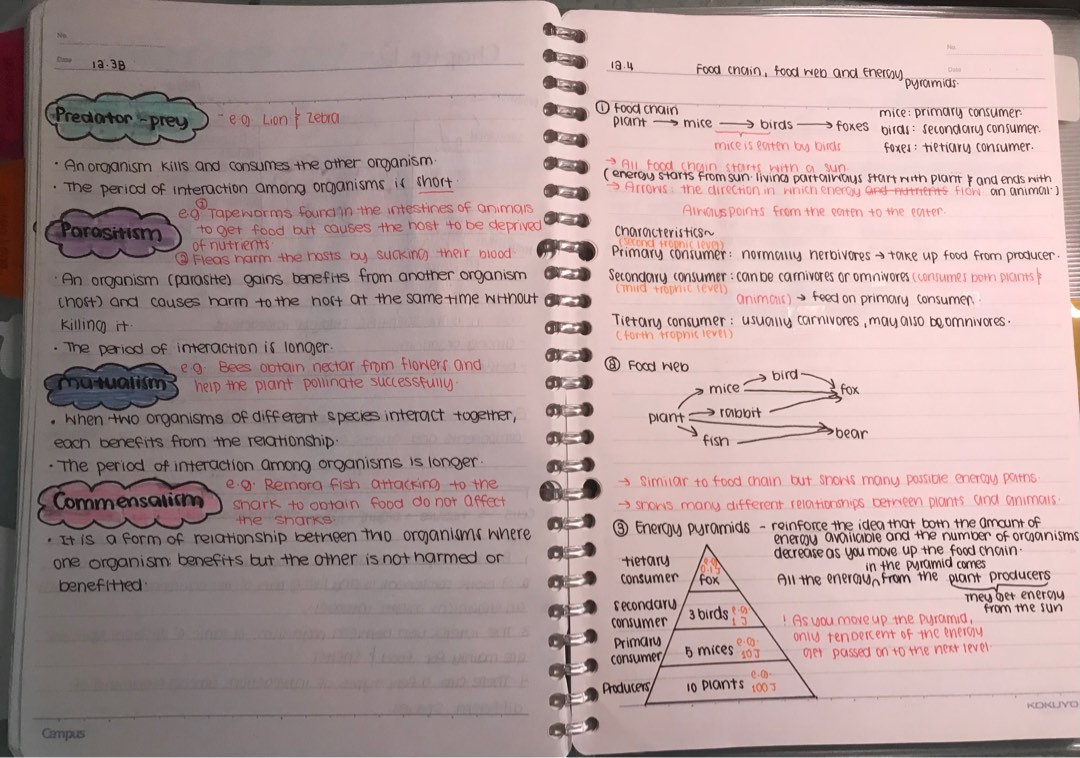 No.
Date
12.3B
Predator-prey
- e.g. Lion & Zebra
· An organism kills and consumes the other organism.
· The period of interaction among organisms is short.
Parasitism
e.g ① Tapeworms found in the intestines of animals
to get food but causes the host to be deprived
of nutrients.
② Fleas harm the hosts by sucking their blood.
· An organism (parasite) gains benefits from another organism
(host) and causes harm to the host at the same time without
killing it.
· The period of interaction is longer.
mutualism
e.g. Bees obtain nectar from flowers and
help the plant pollinate successfully.
· When two organisms of different species interact together,
each benefits from the relationship.
· The period of interaction among organisms is longer.
Commensalism
e.g. Remora fish attacking to the
shark to obtain food do not affect
the sharks.
· It is a form of relationship between two organisms where
one organism benefits but the other is not harmed or
benefitted.
Campus
No.
Date
12.4
Food chain, food web and energy
pyramids.
① Food chain
plant → mice → birds → foxes
mice is eaten by birds
mice: primary consumer.
birds: secondary consumer.
foxes: tietiary consumer.
→ All food chain starts with a sun.
(energy starts from sun. living part always start with plant & and ends with
an animal.)
→ Arrows: the direction in which energy and nutrients flow
Always points from the eaten to the eater.
Characteristics~
(second trophic level)
Primary consumer: normally herbivores → take up food from producer.
Secondary consumer: can be carnivores or omnivores (consumes both plants &
(third trophic level)
animals) → feed on primary consumer.
Tietary consumer: usually carnivores, may also be omnivores.
(forth trophic level)
② Food web
bird
mice
fox
plant
rabbit
fish
bear
→ Similar to food chain but shows many possible energy paths.
→ shows many different relationships between plants and animals.
③ Energy pyramids - reinforce the idea that both the amount of
energy available and the number of organisms
decrease as you move up the food chain.
in the pyramid comes
All the energy from the plant producers
they get energy
from the sun
tietary
consumer
e.g
0.1J
fox
secondary
consumer
3 birds e.g
1 J
Primary
consumer
5 mices e.g.
10J
Producers
10 plants e.g.
100J
! As you move up the pyramid,
only ten percent of the energy
get passed on to the next level.
KOKUYO